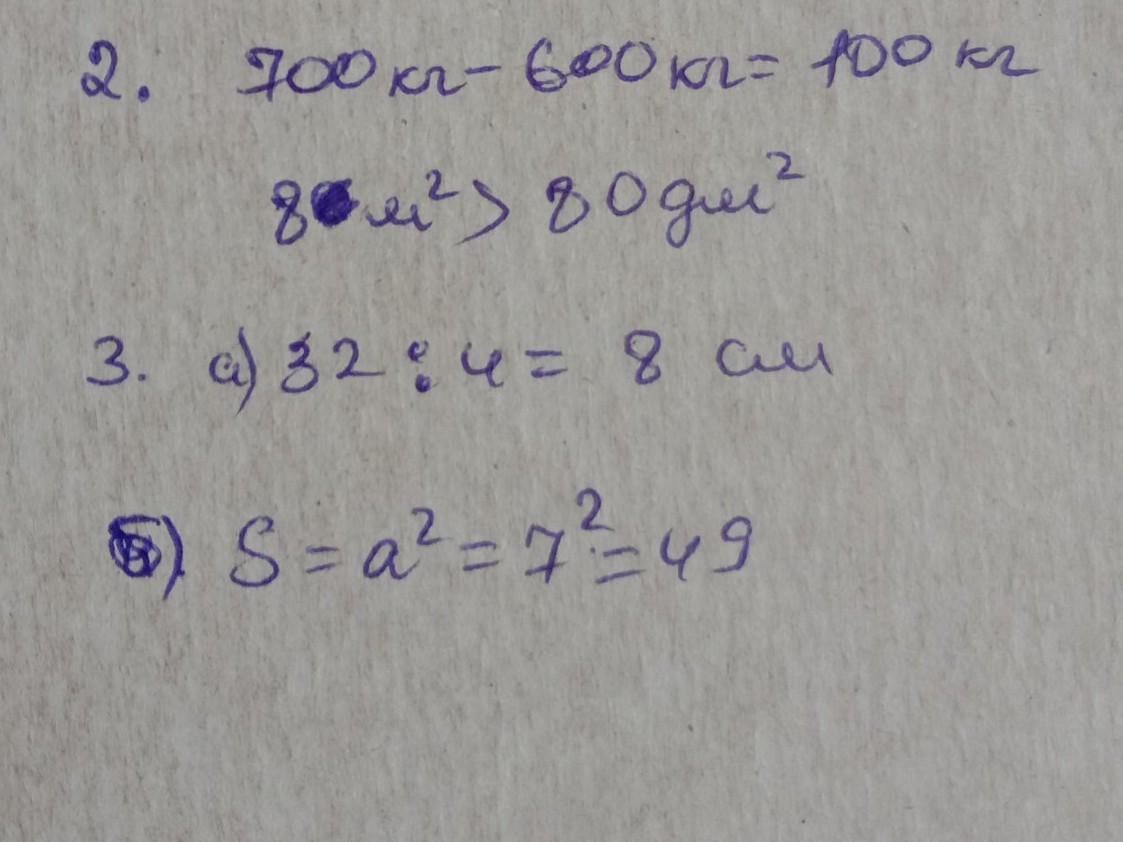 2. 700 кг - 600 кг = 100 кг
8 м² > 80 дм²
3. а) 32 : 4 = 8 см
б) S = a² = 7² = 49